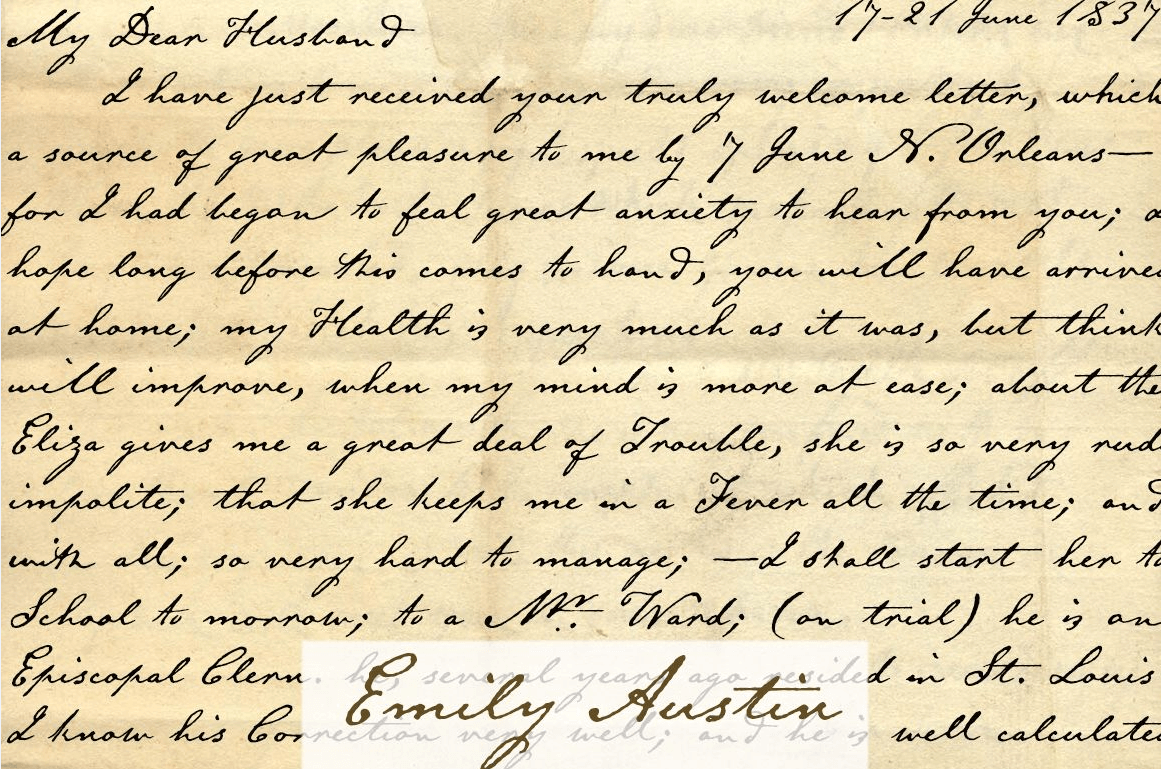 17-21 June 1837
My Dear Husband
I have just received your truly welcome letter, which
a source of great pleasure to me by 7 June N. Orleans—
for I had began to feal great anxiety to hear from you; I
hope long before this comes to hand, you will have arrived
at home; my Health is very much as it was, but think
will improve, when my mind is more at ease; about the
Eliza gives me a great deal of Trouble, she is so very rude
impolite; that she keeps me in a Fever all the time; and
with all; so very hard to manage; —I shall start her to
School to morrow; to a Mr. Ward; (on trial) he is an
Episcopal Clern. he, several years ago resided in St. Louis
Emily Austin
I know his Correction very well; and he is well calculated